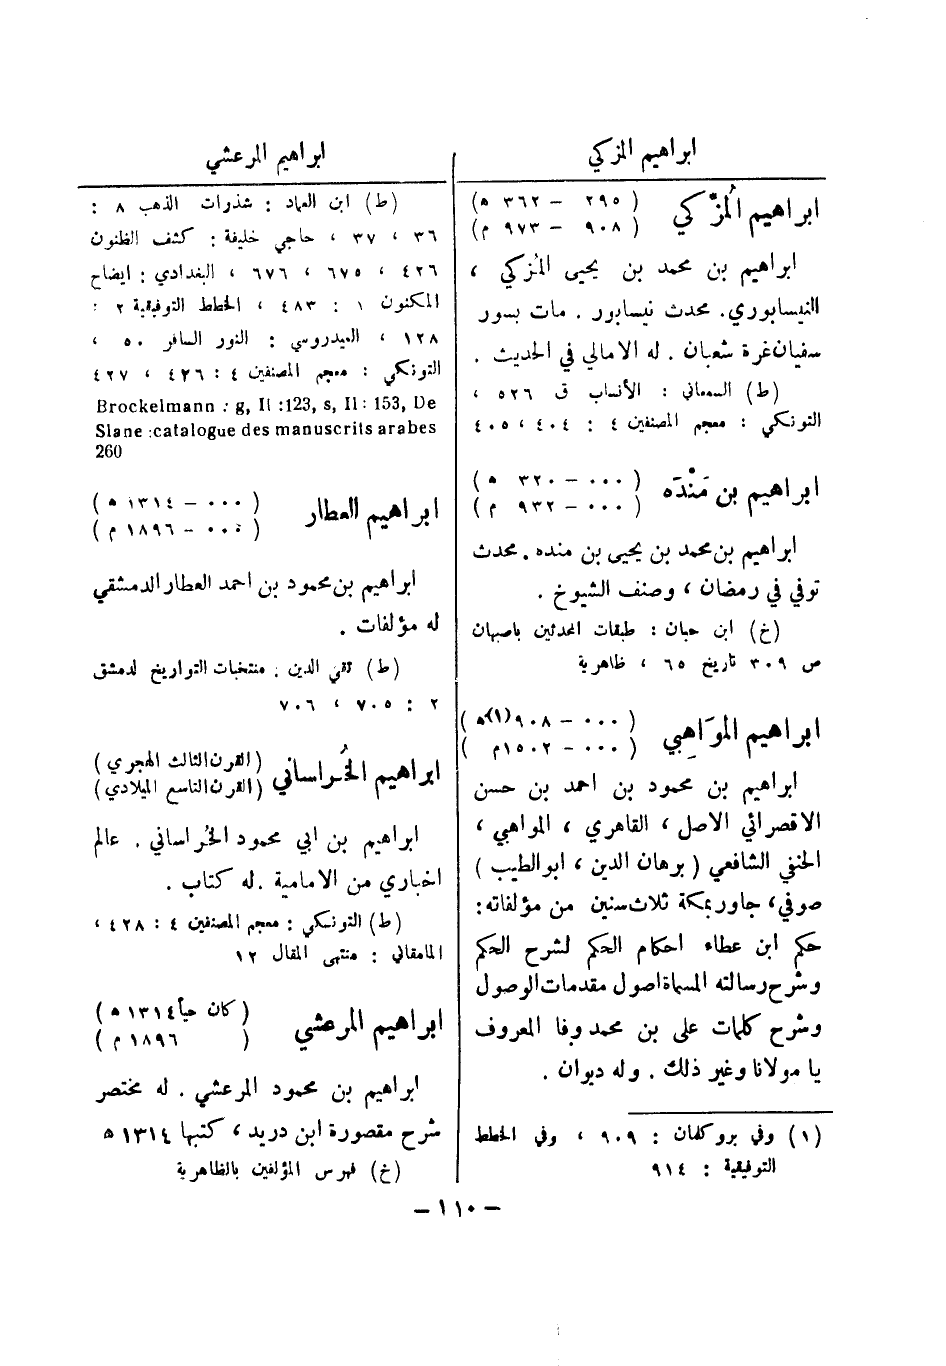 ابراهيم المزكي
ابراهيم المُزّكي
( ٢٩٥ – ٣٦٢ ه )
( ٩٠٨ – ٩٧٣ م )
ابراهيم بن محمد بن يحيى المُزكي ،
النيسابوري. محدث نيسابور . مات بسور
سفيان غرة شعبان . له الامالي في الحديث .
(ط) السمعاني : الأنساب ق ٥٢٦ ،
التونكي : معجم المصنفين ٤ : ٤٠٤ ، ٤٠٥
ابراهيم بن مَنْدَه
( ٠٠٠ – ٣٢٠ ه )
( ٠٠٠ – ٩٣٢ م )
ابراهيم بن محمد بن يحيى بن منده . محدث
توفي في رمضان ، وصنف الشيوخ .
(خ) ابن حبان : طبقات المحدثين باصبهان
ص ٣٠٩ تاريخ ٦٥ ، ظاهرية
ابراهيم الموَاهِبي
( ٠٠٠ – ٩٠٨(١)ه )
( ٠٠٠ – ١٥٠٢م )
ابراهيم بن محمود بن احمد بن حسن
الاقصرائي الاصل ، القاهري ، المواهبي ،
الحنفي الشافعي ( برهان الدين ، ابو الطيب )
صوفي، جاور بمكة ثلاث سنين من مؤلفاته:
حكم ابن عطاء احكام الحكم لشرح الحكم
وشرح رسالته المسماة اصول مقدمات الوصول
وشرح كلمات على بن محمد وفا المعروف
يا مولانا وغير ذلك . وله ديوان .
(١) وفي بروكلمان : ٩٠٩ ، وفي الخطط
التوفيقية : ٩١٤
ابراهيم المرعشي
(ط) ابن العماد : شذرات الذهب ٨ :
٣٦ ، ٣٧ ، حاجي خليفة : كشف الظنون
٤٢٦ ، ٦٧٥ ، ٦٧٦ ، البغدادي : ايضاح
المكنون ١ : ٤٨٣ ، الخطط التوفيقية ٢ :
١٢٨ ، العيدروسي : النور السافر ٥٠ ،
التونكي : معجم المصنفين ٤ : ٤٢٦ ، ٤٢٧
Brockelmann : g, II :123, s, II : 153, De
Slane :catalogue des manuscrits arabes
260
ابراهيم العطار
( ٠٠٠ – ١٣١٤ ه )
( ٠٠٠ – ١٨٩٦ م )
ابراهيم بن محمود بن احمد العطار الدمشقي
له مؤلفات .
(ط) تقي الدين : منتخبات التواريخ لدمشق
٢ : ٧٠٥ ، ٧٠٦
ابراهيم الخُراساني
( القرن الثالث الهجري )
( القرن التاسع الميلادي )
ابراهيم بن ابي محمود الخُراساني . عالم
اخباري من الامامية . له كتاب .
(ط) التونكي : معجم المصنفين ٤ : ٤٢٨ ،
المامقاني : منتهى المقال ١٢
ابراهيم المرعشي
( كان حياً ١٣١٤ ه )
( ١٨٩٦ م )
ابراهيم بن محمود المرعشي . له مختصر
شرح مقصورة ابن دريد ، كتبها ١٣١٤ ه
(خ) فهرس المؤلفين بالظاهرية
– ١١٠ –